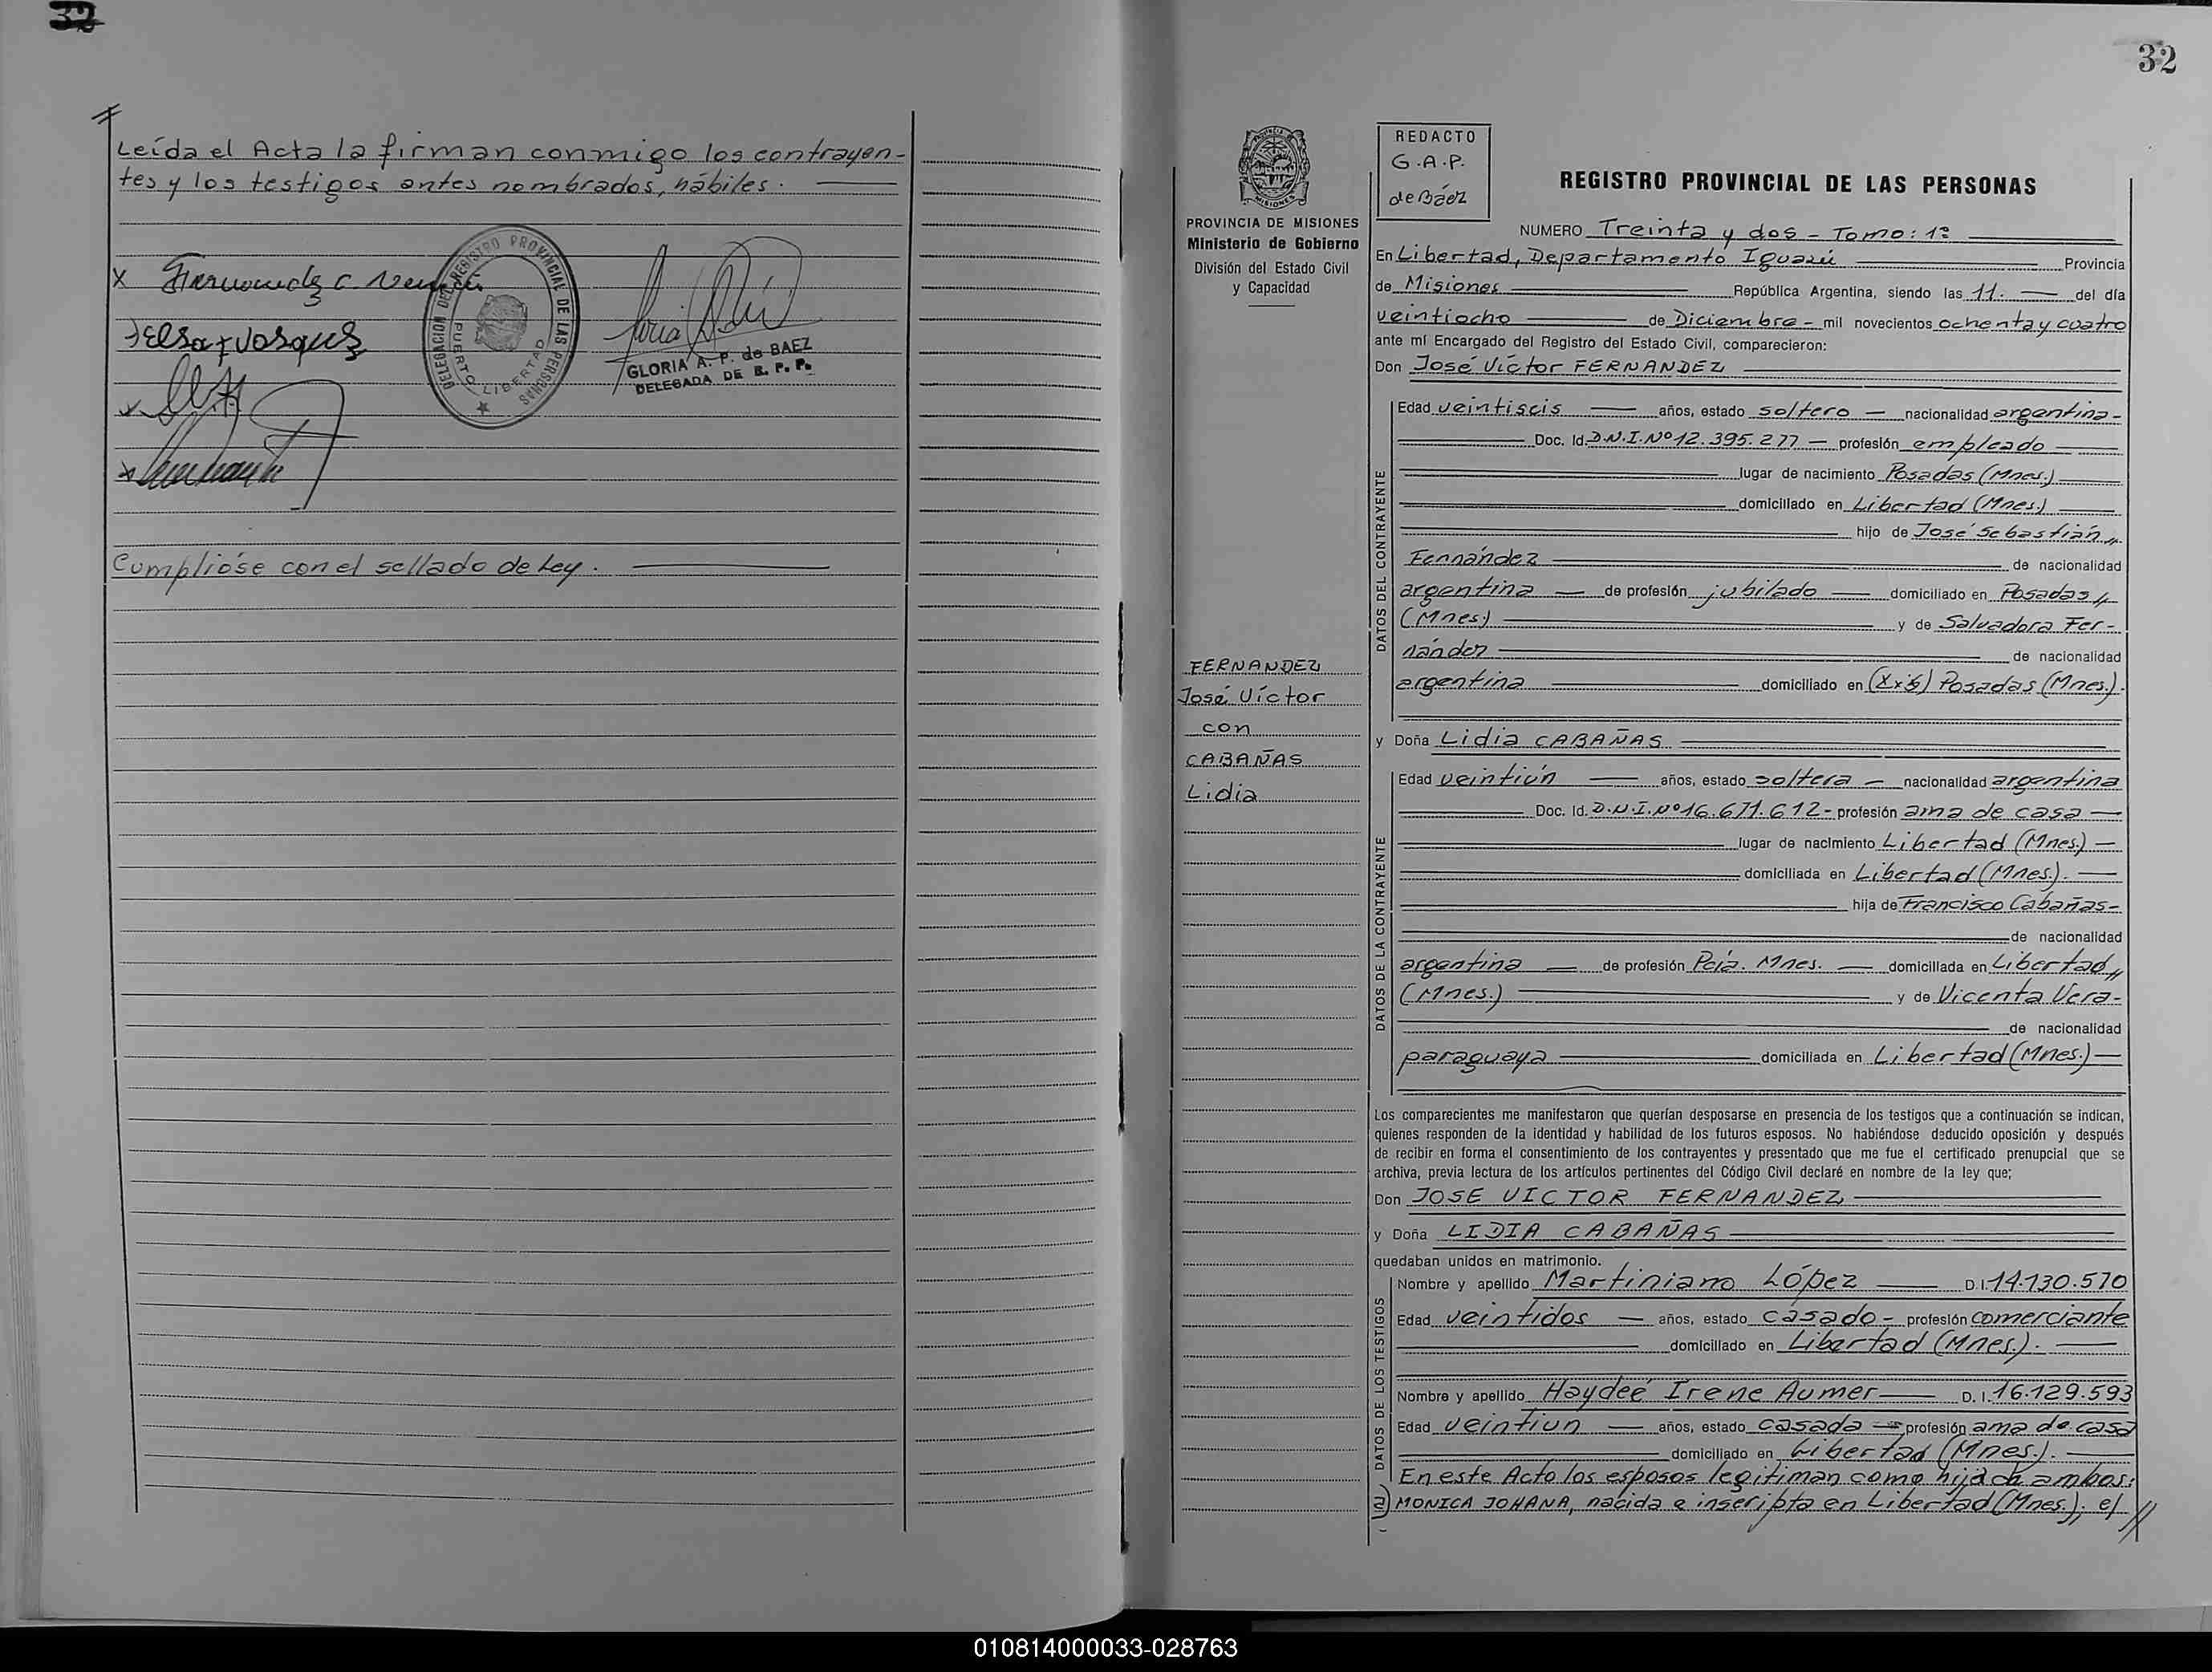 32
Leída el Acta la firman conmigo los contrayen-
tes y los testigos antes nombrados, hábiles.
DELEGACION DEL REGISTRO PROVINCIAL DE LAS PERSONAS
PUERTO LIBERTAD
GLORIA A. P. de BAEZ
DELEGADA DE R. P. P.
Cumplióse con el sellado de Ley.
32
PROVINCIA DE MISIONES
Ministerio de Gobierno
División del Estado Civil
y Capacidad
FERNANDEZ
José Víctor
con
CABAÑAS
Lidia
REDACTO
G.A.P.
de Báez
REGISTRO PROVINCIAL DE LAS PERSONAS
NUMERO Treinta y dos - Tomo: 1º
En Libertad, Departamento Iguazú Provincia
de Misiones República Argentina, siendo las 11. del día
veintiocho de Diciembre - mil novecientos ochenta y cuatro
ante mí Encargado del Registro del Estado Civil, comparecieron:
Don José Víctor FERNANDEZ
DATOS DEL CONTRAYENTE
Edad veintiseis años, estado soltero nacionalidad argentina-
Doc. Id. D.N.I. Nº 12.395.277 profesión empleado
lugar de nacimiento Posadas (Mnes.)
domiciliado en Libertad (Mnes.)
hijo de José Sebastián
Fernández de nacionalidad
argentina de profesión jubilado domiciliado en Posadas
(Mnes) y de Salvadora Fer-
nández de nacionalidad
argentina domiciliado en Posadas (Mnes.).
y Doña Lidia CABAÑAS
DATOS DE LA CONTRAYENTE
Edad veintiún años, estado soltera nacionalidad argentina
Doc. Id. D.N.I. Nº 16.671.612- profesión ama de casa
lugar de nacimiento Libertad (Mnes.)
domiciliada en Libertad (Mnes.).
hija de Francisco Cabañas-
de nacionalidad
argentina de profesión Pcia. Mnes. domiciliada en Libertad
(Mnes.) y de Vicenta Vera-
de nacionalidad
paraguaya domiciliada en Libertad (Mnes.)
Los comparecientes me manifestaron que querían desposarse en presencia de los testigos que a continuación se indican,
quienes responden de la identidad y habilidad de los futuros esposos. No habiéndose deducido oposición y después
de recibir en forma el consentimiento de los contrayentes y presentado que me fue el certificado prenupcial que se
archiva, previa lectura de los artículos pertinentes del Código Civil declaré en nombre de la ley que;
Don JOSE VICTOR FERNANDEZ
y Doña LIDIA CABAÑAS
quedaban unidos en matrimonio.
DATOS DE LOS TESTIGOS
Nombre y apellido Martiniano López D.I. 14.130.570
Edad veintidos años, estado casado - profesión comerciante
domiciliado en Libertad (Mnes.).
Nombre y apellido Haydeé Irene Aumer D. I. 16.129.593
Edad veintiun años, estado casada profesión ama de casa
domiciliado en Libertad (Mnes.).
En este Acto los esposos legitiman como hija de ambos:
a) MONICA JOHANA, nacida e inscripta en Libertad (Mnes.); el //
010814000033-028763